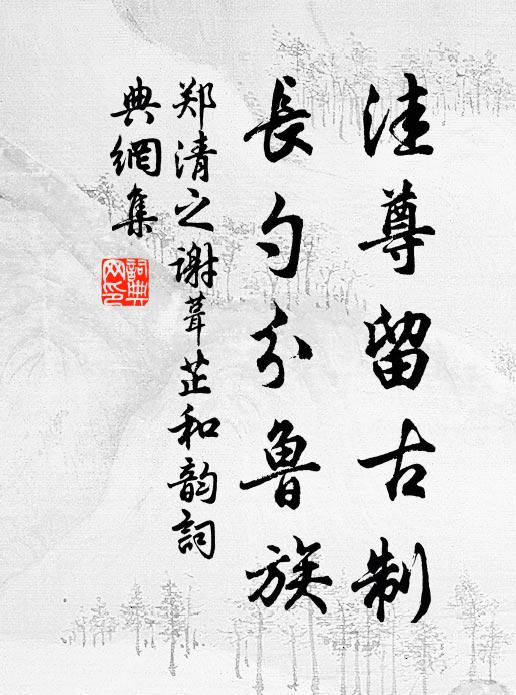 洼尊留古制
長勺分魯族
郑清之谢葺芷和韵詞
典網集
詞典網印